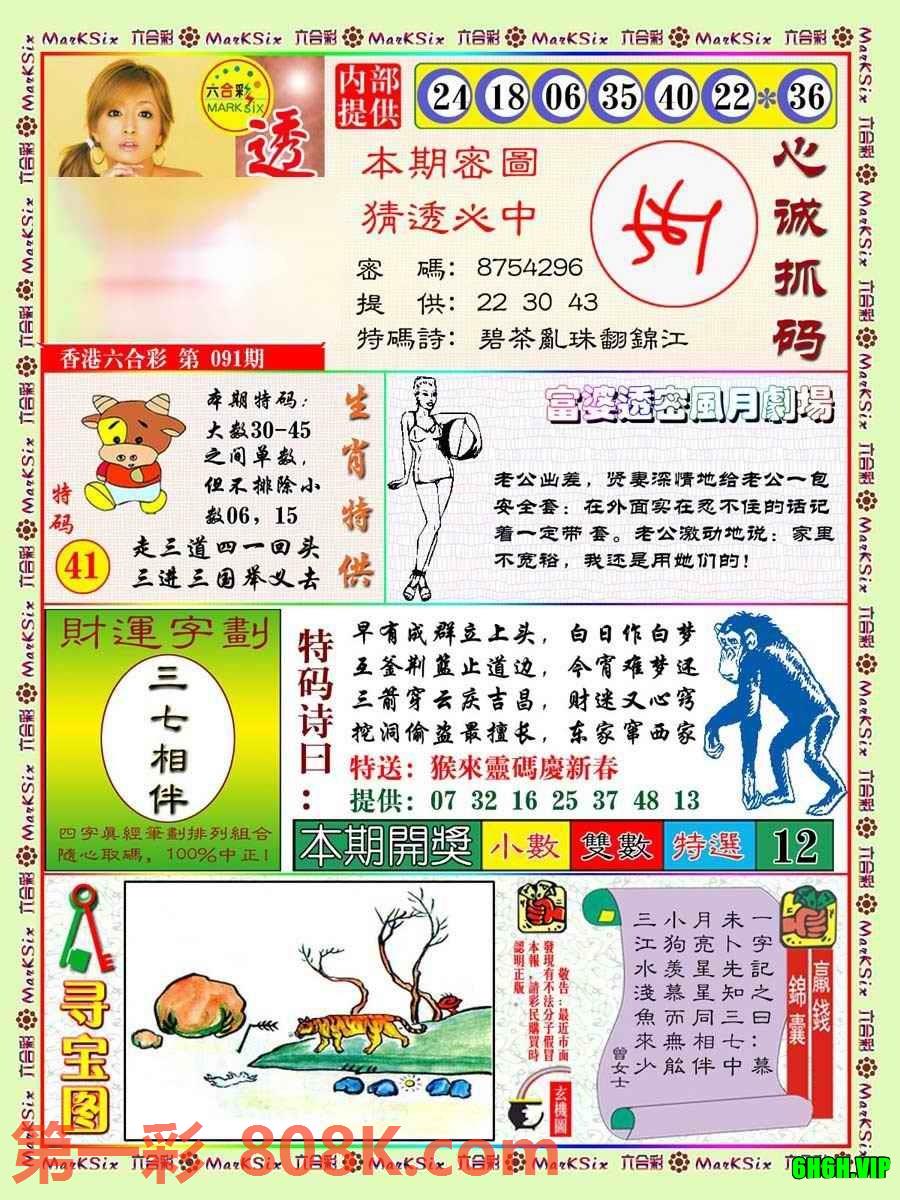 MarKSix 六合彩 MarKSix 六合彩 MarKSix 六合彩 MarKSix 六合彩 MarKSix 六合彩
六合彩
MARK SIX
透
内部
提供
24 18 06 35 40 22 * 36
本期密圖
猜透必中
密 碼：8754296
提 供：22 30 43
特碼詩：碧茶亂珠翻錦江
心诚抓码
香港六合彩 第 091期
本期特码：
大数30-45
之间单数，
但不排除小
数06，15
生肖特供
特码
41
走三道四一回头
三进三国举义去
富婆透密風月劇場
老公出差，贤妻深情地给老公一包
安全套：在外面实在忍不住的话记
着一定带 套。老公激动地说：家里
不宽裕，我还是用她们的！
財運字劃
三七相伴
四字真經筆劃排列組合
隨心取碼，100%中正!
特码诗曰：
早有成群立上头，白日作白梦
五釜荆蓝止道边，今宵难梦还
三箭穿云庆吉昌，财迷又心窍
挖洞偷盗最擅长，东家窜西家
特送：猴來靈碼慶新春
提供：07 32 16 25 37 48 13
本期開獎 小數 雙數 特選 12
寻宝图
敬告：最近市面
發現有不法分子假冒
本報，請彩民購買時
認明正版。
玄機圖
一字記之曰：慕
未卜先知三七中
月亮星星同相伴
小狗羡慕而無能
三江水淺魚來少
曾女士
贏錢
錦囊
第一彩 808K.com
MarKSix 六合彩 MarKSix 六合彩 MarKSix 六合彩 MarKSix 六合彩 MarKSix 六合彩
6H6H.VIP